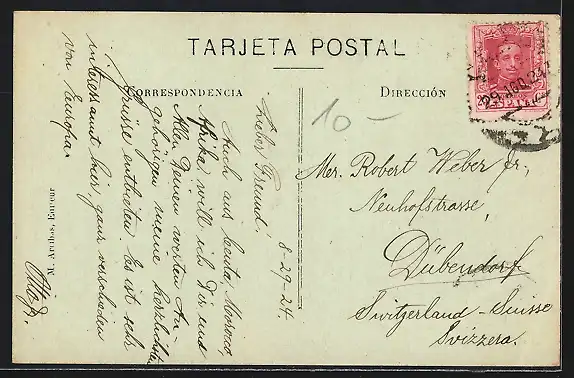 TARJETA POSTAL
CORRESPONDENCIA
DIRECCIÓN
10-
29 AGO 24
8-29-24.
Lieber Freund.
Auch aus Ceuta, Morocco,
Afrika will ich Dir und
Allen Deinen werten An-
gehörigen meine herzlichsten
Grüsse entbieten. Es ist sehr
interessant hier, ganz verschieden
von Europa.
Otto
M. Arubas, Editeur
Mer. Robert Weber Jr,
Neuhofstrasse,
Dübendorf
Switzerland-Suisse
Svizzera.